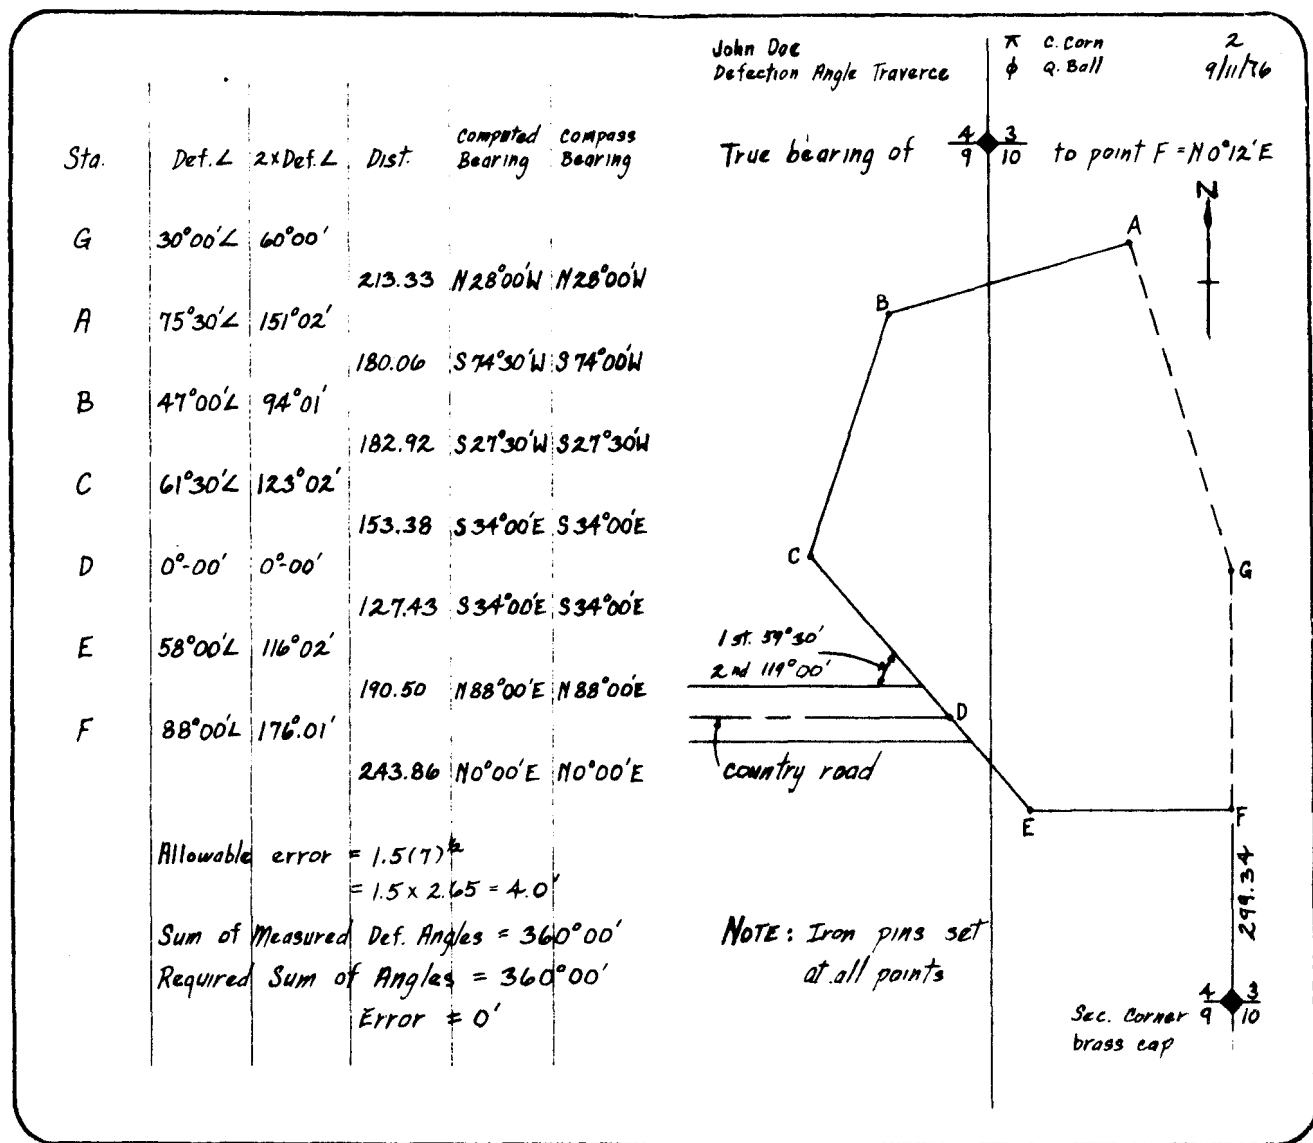 John Doe
Defection Angle Traverce
⊼ C. Corn
ϕ Q. Ball
2
9/11/76
Sta. Def.∠ 2xDef.∠ Dist. Computed Bearing Compass Bearing
G 30°00'∠ 60°00'
213.33 N28°00'W N28°00'W
A 75°30'∠ 151°02'
180.06 S74°30'W S74°00'W
B 47°00'∠ 94°01'
182.92 S27°30'W S27°30'W
C 61°30'∠ 123°02'
153.38 S34°00'E S34°00'E
D 0°-00' 0°-00'
127.43 S34°00'E S34°00'E
E 58°00'∠ 116°02'
190.50 N88°00'E N88°00'E
F 88°00'L 176°.01'
243.86 N0°00'E N0°00'E
Allowable error = 1.5(7)½
= 1.5 x 2.65 = 4.0'
Sum of Measured Def. Angles = 360°00'
Required Sum of Angles = 360°00'
Error = 0'
True bearing of 4 3 9 10 to point F = N0°12'E
N
A
B
C
G
1 st. 59°30'
2 nd 119°00'
D
country road
E
F
299.34
NOTE: Iron pins set
at all points
4 3
9 10
Sec. Corner
brass cap